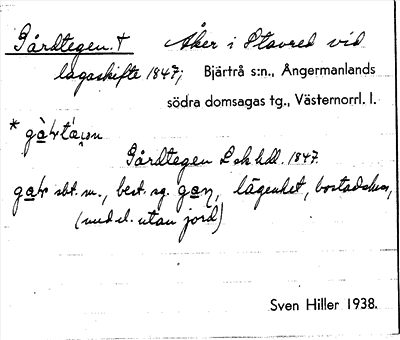 Gårdtegen. † Åker i Stavred vid
lagaskifte 1847; Bjärtrå s:n., Ångermanlands
södra domsagas tg., Västernorrl. l.
Gårdtegen L sk hdl. 1847.
sbt. m., best. sg. lägenhet, bostadshus,
(med el. utan jord)
Sven Hiller 1938.